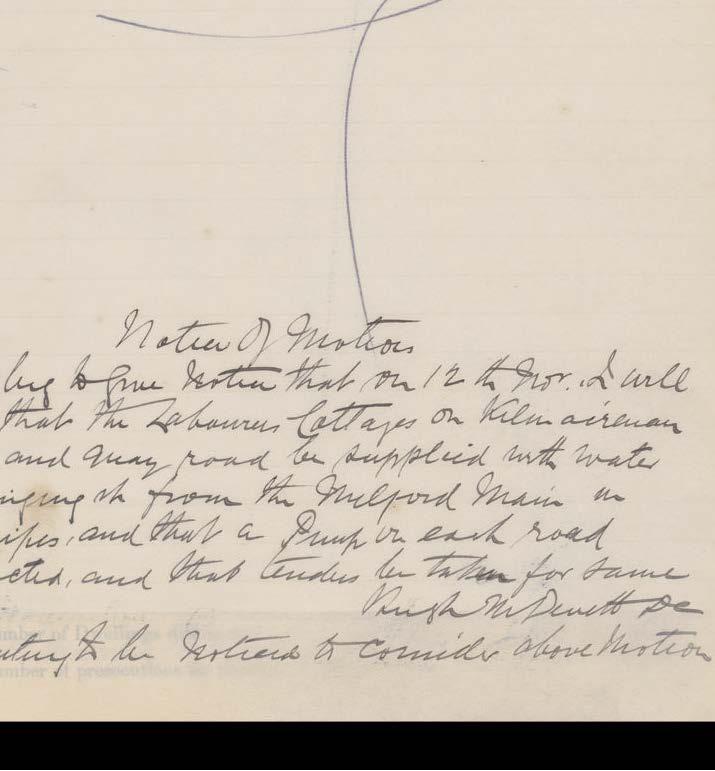 Notice Of Motion
beg to give notice that on 12th Nov. I will
that the Labourers Cottages on Kilmacrenan
and Quay road be supplied with water
from the Milford Main in
and that a Pump on each road
and that tenders be taken for same
Hugh McDevett DC
to be noticed to consider above Motion